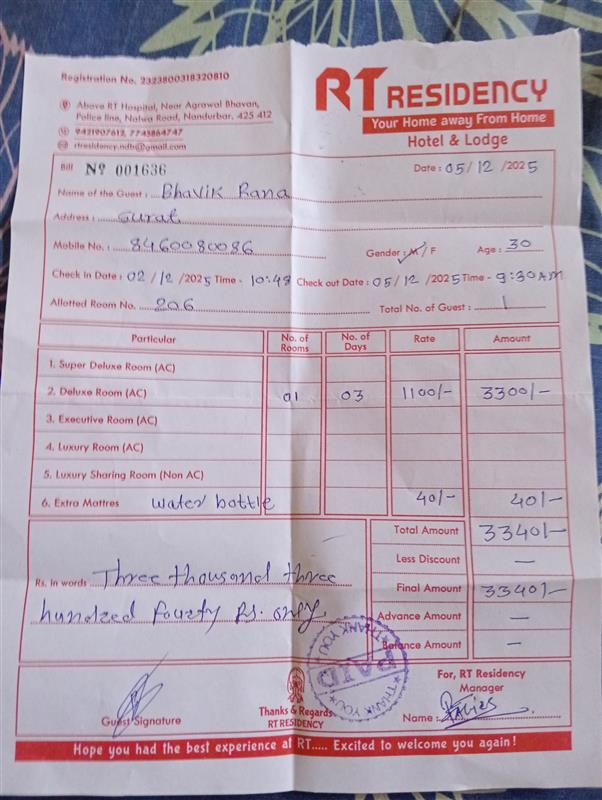 Registration No. 2323800318320810
RT RESIDENCY
Your Home away From Home
Hotel & Lodge
Above RT Hospital, Near Agrawal Bhavan,
Police line, Nalwa Road, Nandurbar, 425 412
9421907612, 7743864747
rtresidency.ndb@gmail.com
Bill Nº 001636 Date : 05/12/2025
Name of the Guest : Bhavik Rana
Address : Surat
Mobile No. : 8460080086 Gender : M/F Age : 30
Check in Date : 02/12/2025 Time - 10:48 Check out Date : 05/12/2025 Time - 9:30AM
Allotted Room No. 206 Total No. of Guest : 1
Particular No. of Rooms No. of Days Rate Amount
1. Super Deluxe Room (AC)
2. Deluxe Room (AC) 01 03 1100/- 3300/-
3. Executive Room (AC)
4. Luxury Room (AC)
5. Luxury Sharing Room (Non AC)
6. Extra Mattres water bottle 40/- 40/-
Total Amount 3340/-
Less Discount -
Rs. in words Three thousand three
Final Amount 3340/-
hundred fourty Rs. only
Advance Amount -
Balance Amount -
THANK YOU PAID THANK YOU
For, RT Residency
Manager
Guest Signature
Thanks & Regards
RT RESIDENCY
Name :
Hope you had the best experience at RT..... Excited to welcome you again !